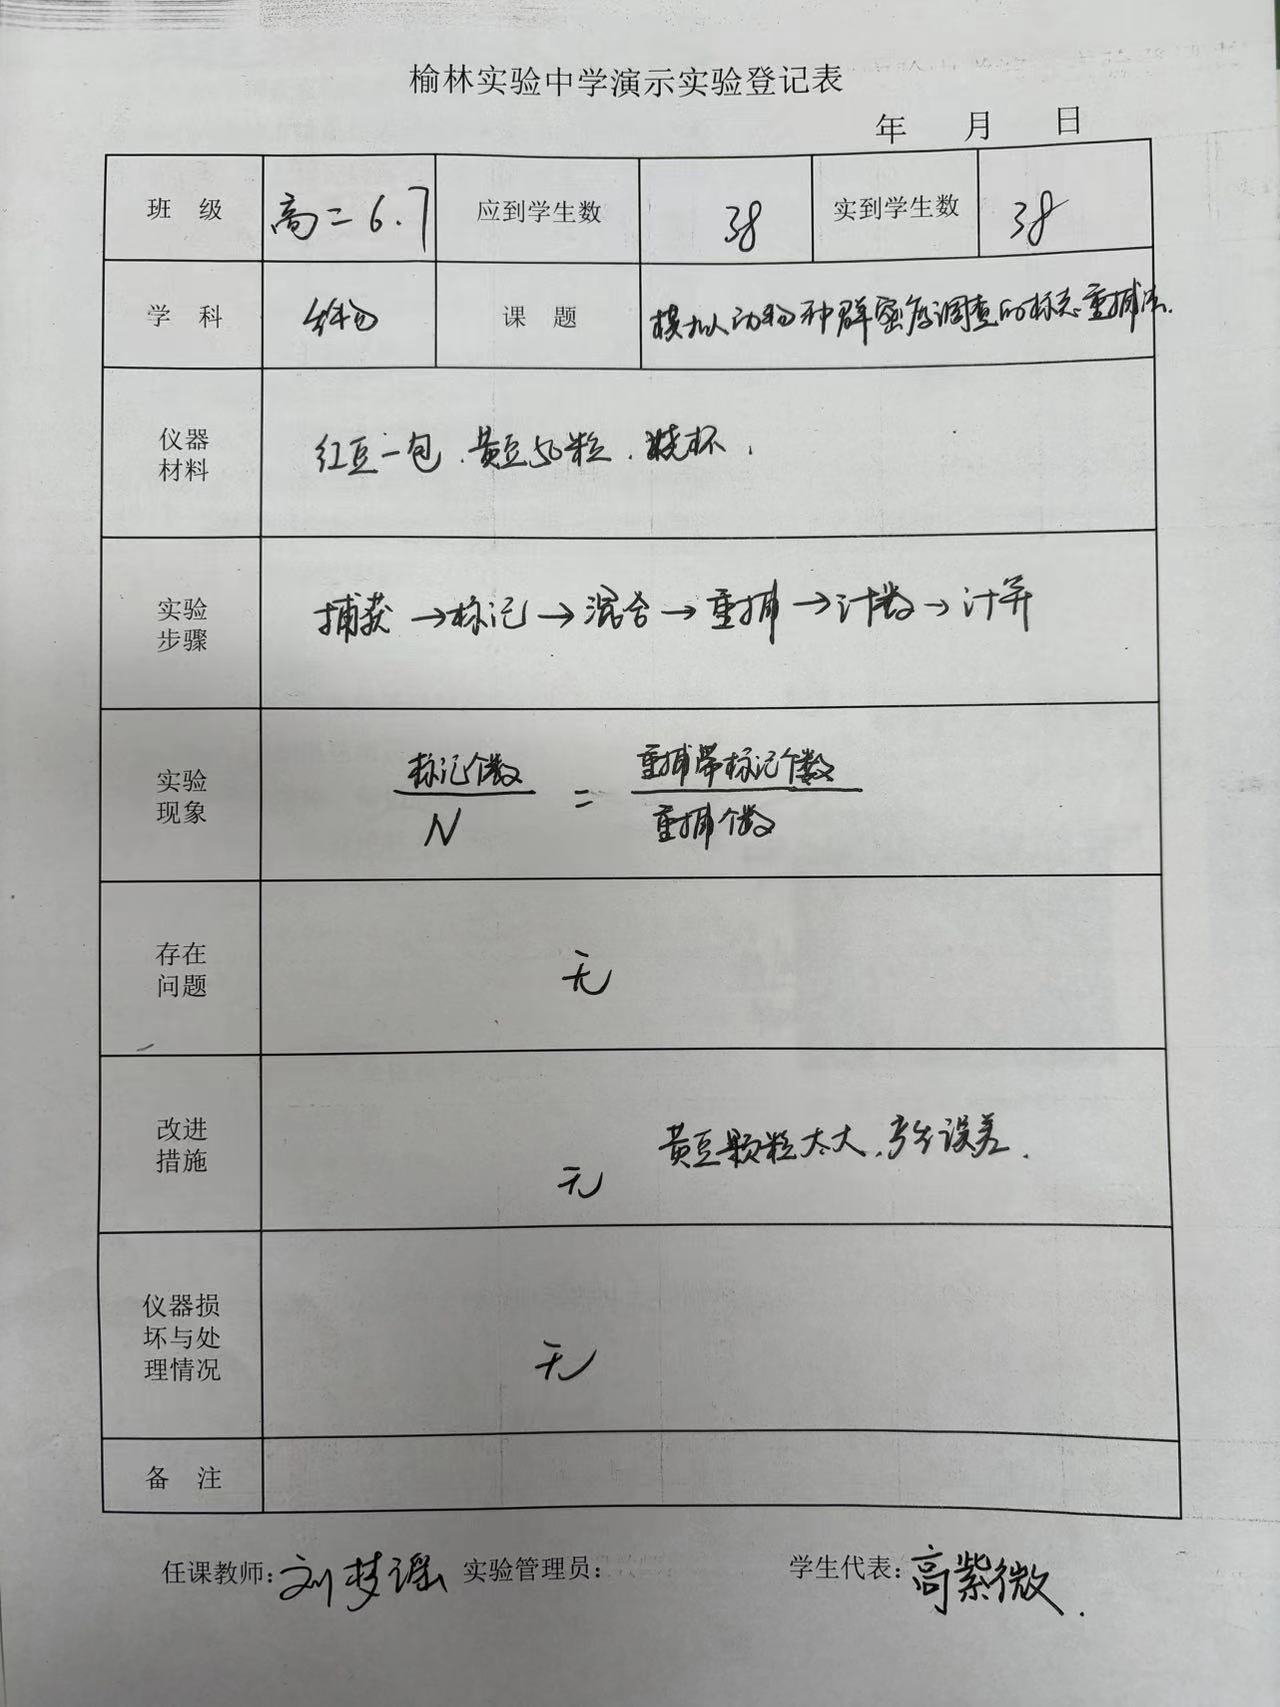 榆林实验中学演示实验登记表
年 月 日
班 级 高二6.7 应到学生数 38 实到学生数 38
学 科 生物 课 题 模拟动物种群密度调查的标志重捕法.
仪器
材料
红豆一包.黄豆50粒.烧杯.
实验
步骤
捕获→标记→混合→重捕→计数→计算
实验
现象
标记个数 = 重捕带标记个数
N 重捕个数
存在
问题
无
改进
措施
黄豆颗粒太大.产生误差.
无
仪器损
坏与处
理情况
无
备 注
任课教师:刘梦瑶 实验管理员: 学生代表:高紫微.